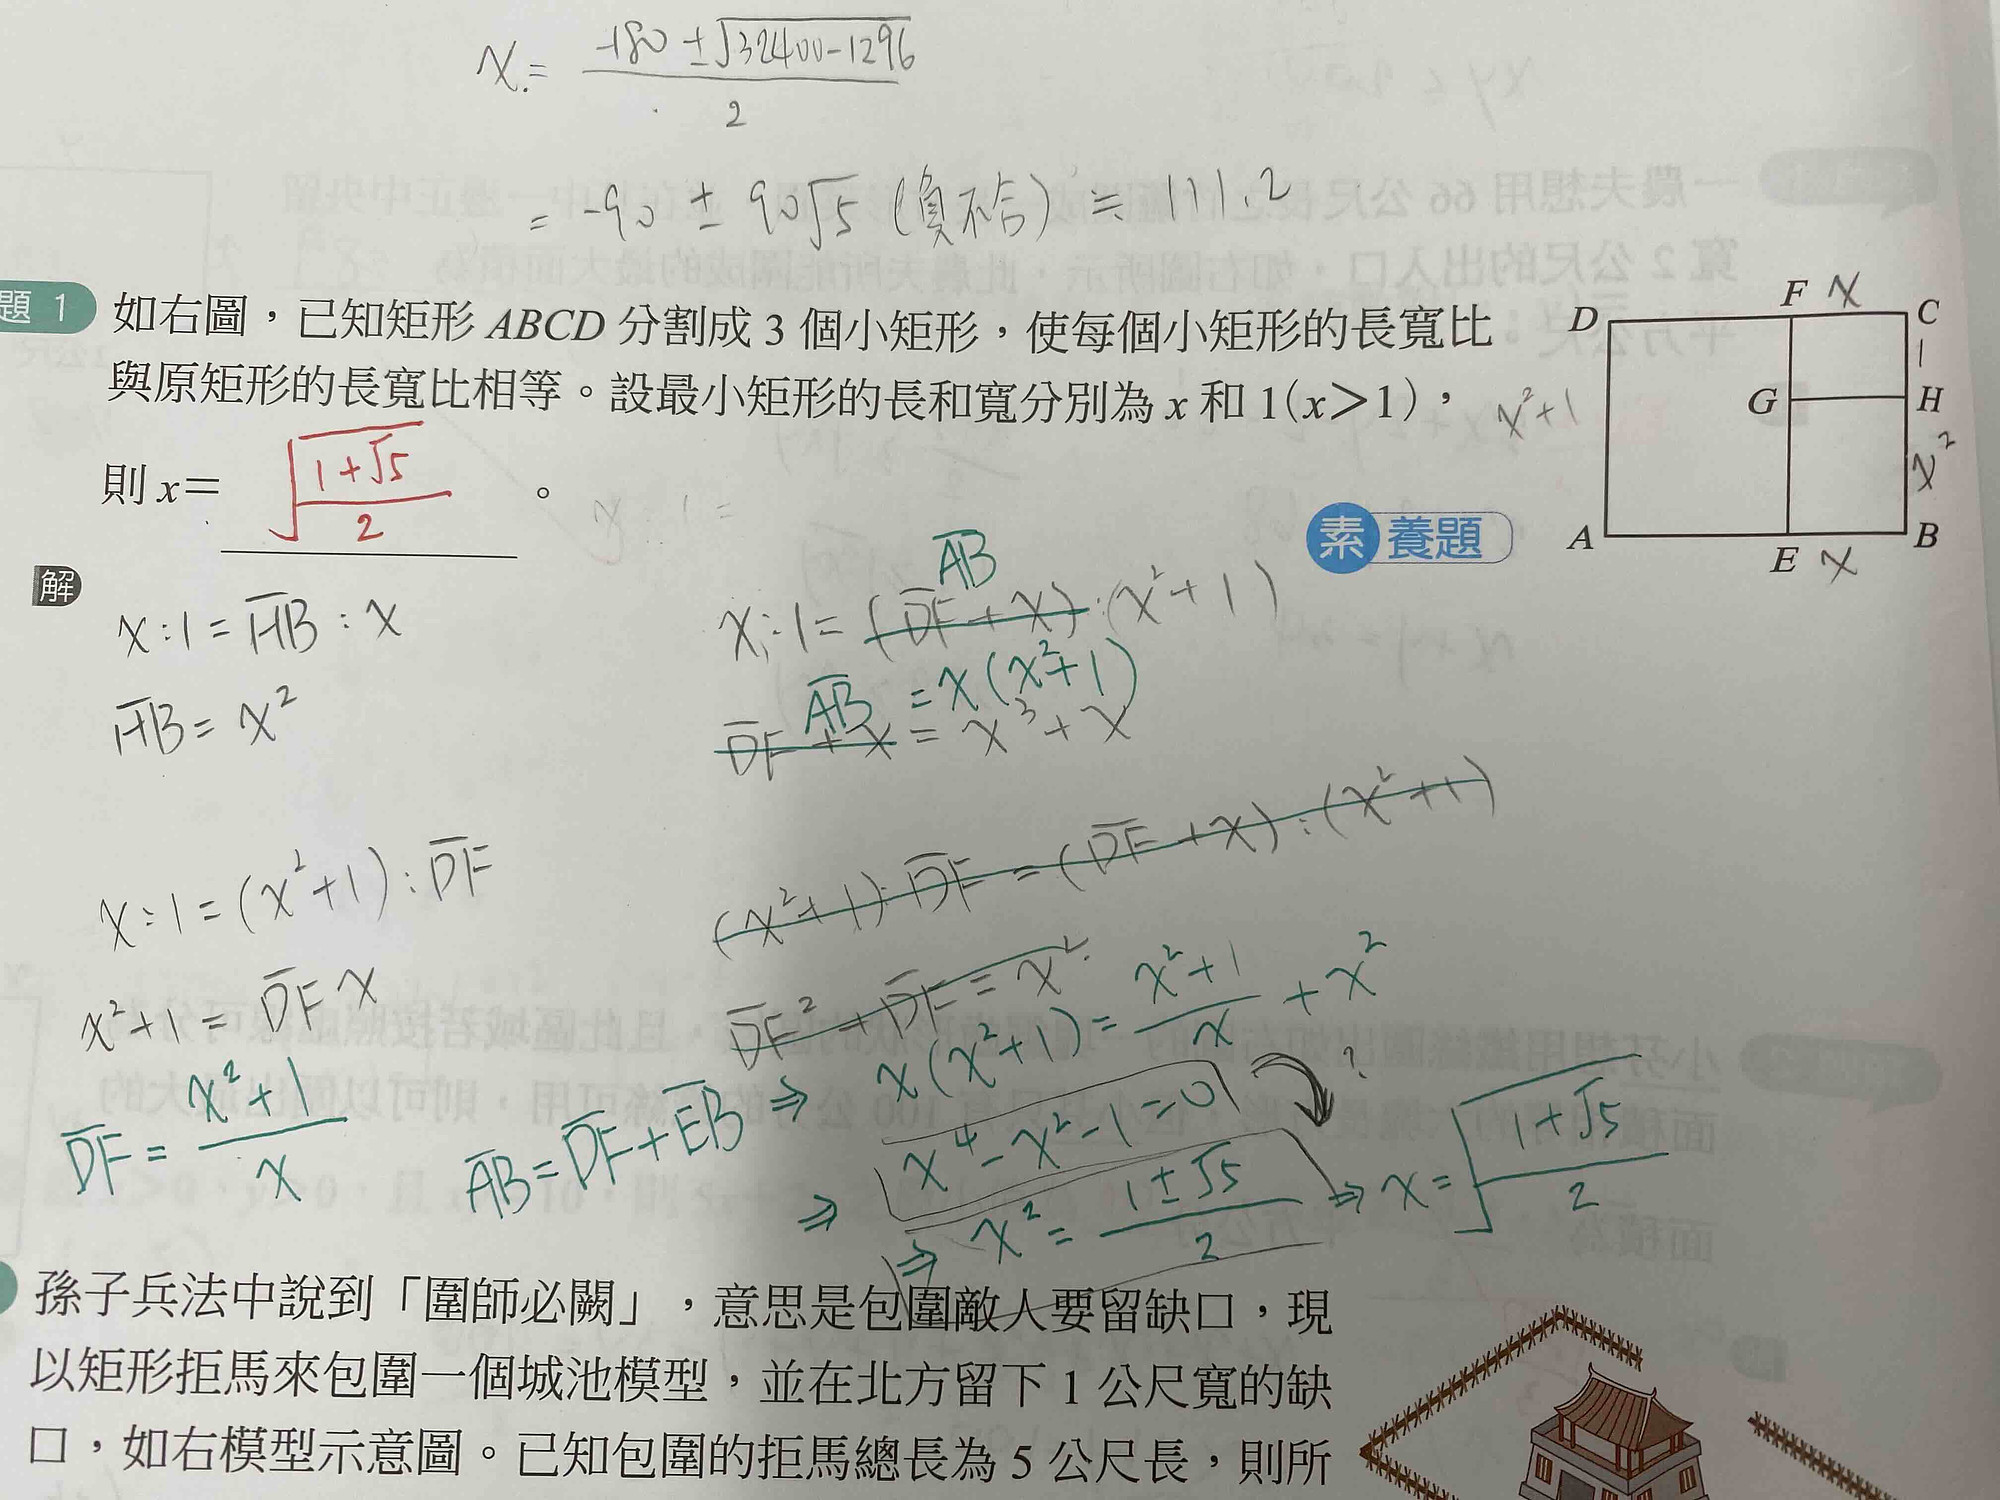 x = (-180 ± √(32400-1296)) / 2
= -90 ± 90√5 (負不合) ≒ 111.2
題 1 如右圖，已知矩形 ABCD 分割成 3 個小矩形，使每個小矩形的長寬比
與原矩形的長寬比相等。設最小矩形的長和寬分別為 x 和 1(x＞1)，
則 x＝ √((1+√5)/2) 。
D F x C
1
G H
x²+1
x²
A E x B
素養題
解
x:1 = HB : x
HB = x²
x:1 = (x²+1) : DF
x²+1 = DF x
DF = (x²+1)/x
AB
x:1 = (DF + x) : (x²+1)
AB = x(x²+1)
DF + x = x³+x
(x²+1) : DF = (DF + x) : (x²+1)
DF² + DF = x²
AB = DF + EB ⇒ x(x²+1) = (x²+1)/x + x²
⇒ x⁴-x²-1=0 ?
⇒ x² = (1±√5)/2 ⇒ x = √((1+√5)/2)
孫子兵法中說到「圍師必闕」，意思是包圍敵人要留缺口，現
以矩形拒馬來包圍一個城池模型，並在北方留下 1 公尺寬的缺
口，如右模型示意圖。已知包圍的拒馬總長為 5 公尺長，則所